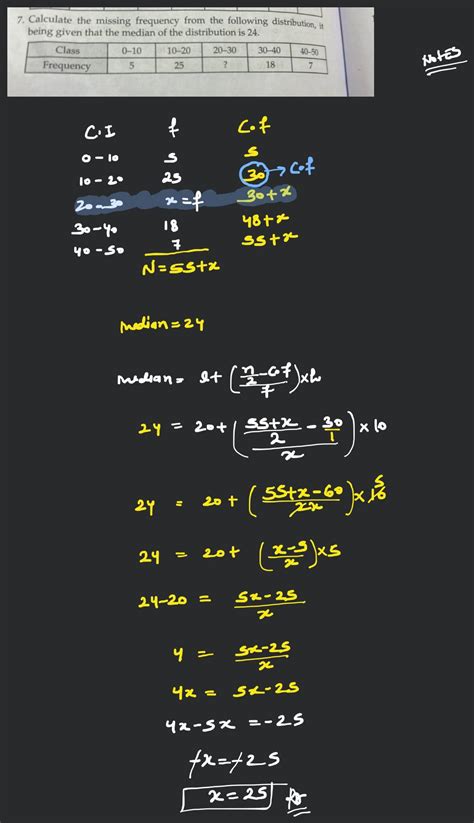 7. Calculate the missing frequency from the following distribution, it
being given that the median of the distribution is 24.
Class 0-10 10-20 20-30 30-40 40-50
Frequency 5 25 ? 18 7
NOTES
C.I f C.f
0-10 5 5
10-20 25 30 → C.f
20-30 x=f 30+x
30-40 18 48+x
40-50 7 55+x
N=55+x
median=24
median= l+(n/2-c.f/f)×h
24 = 20+(55+x/2 - 30/1/x)×10
24 = 20+(55+x-60/2x)×10 5
24 = 20+ (x-5/x)×5
24-20 = 5x-25/x
4 = 5x-25/x
4x = 5x-25
4x-5x =-25
-x=-25
x=25